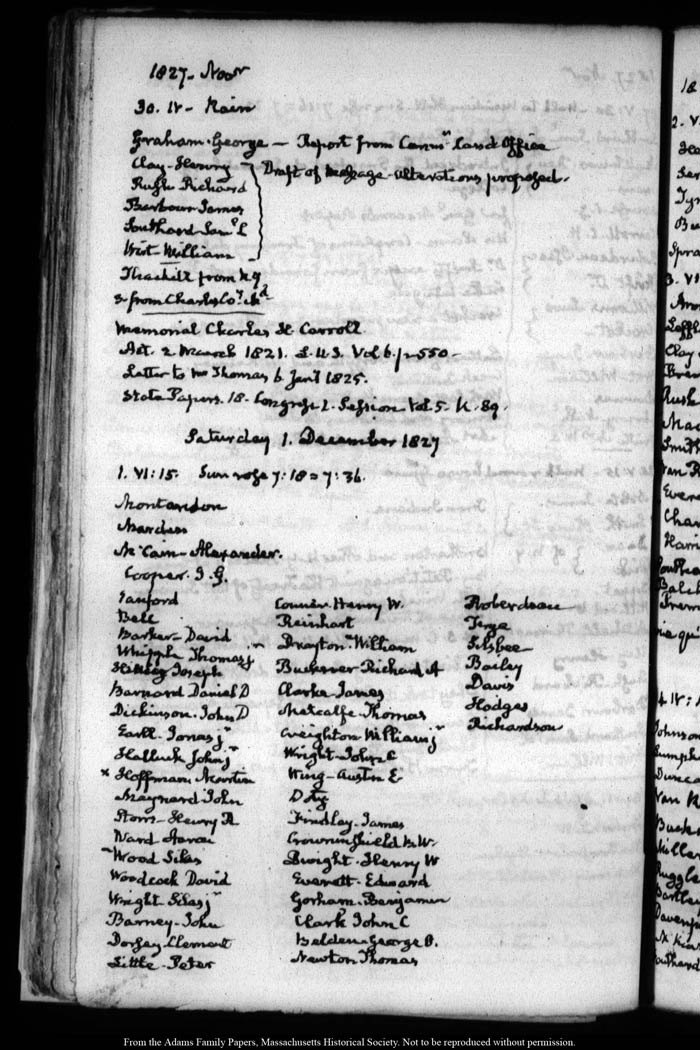 1827. Novr
30. IV - Rain
Graham. George - Report from Commr Land Office
Clay. Henry
Draft of Message - alterations proposed.
Rush Richard
Barbour James
Southard Saml L
Wirt William
from N.Y
& from Charles Co. Md
Memorial Charles H. Carroll.
Act. 2 March 1821. L.U.S. Vol 6. p 550 -
Letter to Mr Thomas 6 Jany 1825.
State Papers. 18. Congress 2. Session Vol 5. N. 89.
Saturday 1. December 1827
1. VI:15. Sun rose 7:18 = 7:36.
Montandon
Marden
McCain - Alexander.
Cooper. I. G.
Sanford
Bell
Barker - David
Whipple Thomas jr
Healy Joseph
Barnard Daniel D
Dickinson. John D
Earll. Jonas jr
Hallock John jr
x Hoffman. Martin
Maynard John
Storrs - Henry R
Ward Aaron
Wood Silas
Woodcock David
Wright Silas jr
Barney. John
Dorsey. Clement
Little. Peter
Conner. Henry W.
Reinhart
Drayton William
Buckner Richard A
Clarke James
Metcalfe Thomas
Creighton William jr
Wright - John C
Wing - Austin E
Doty
Findlay. James
Crowninshield B. W.
Dwight. Henry W
Everett. Edward
Gorham. Benjamin
Clark John C
Belden. George O.
Newton Thomas
Roberdeau
Silsbee
Bailey
Davis
Hodges
Richardson
From the Adams Family Papers, Massachusetts Historical Society. Not to be reproduced without permission.